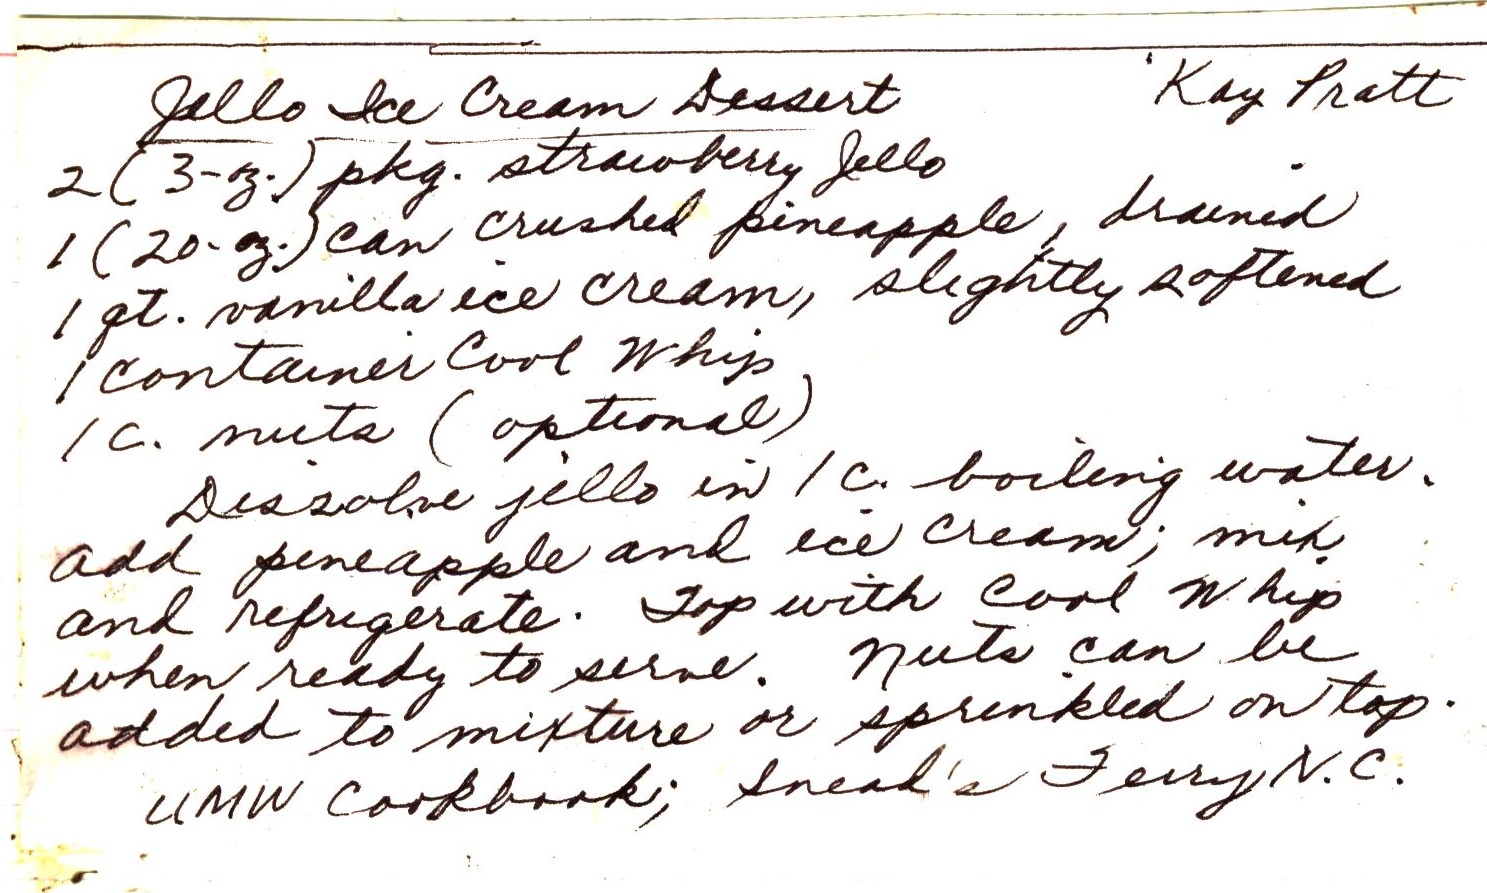 Jello Ice Cream Dessert Kay Pratt
2 (3-oz.) pkg. strawberry Jello
1 (20-oz.) can crushed pineapple, drained
1 qt. vanilla ice cream, slightly softened
1 container Cool Whip
1 c. nuts (optional)
Dissolve jello in 1 c. boiling water.
Add pineapple and ice cream; mix
and refrigerate. Top with Cool Whip
when ready to serve. Nuts can be
added to mixture or sprinkled on top.
UMW Cookbook; Snead's Ferry N.C.